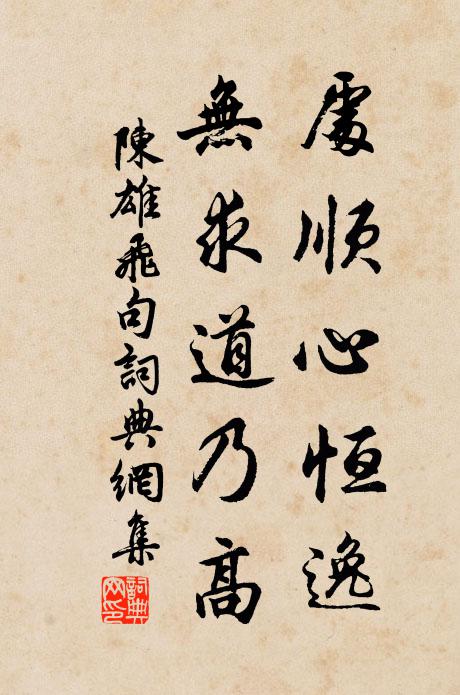 處順心恒逸
無求道乃高
陳雄飛句詞典網集
詞典網印